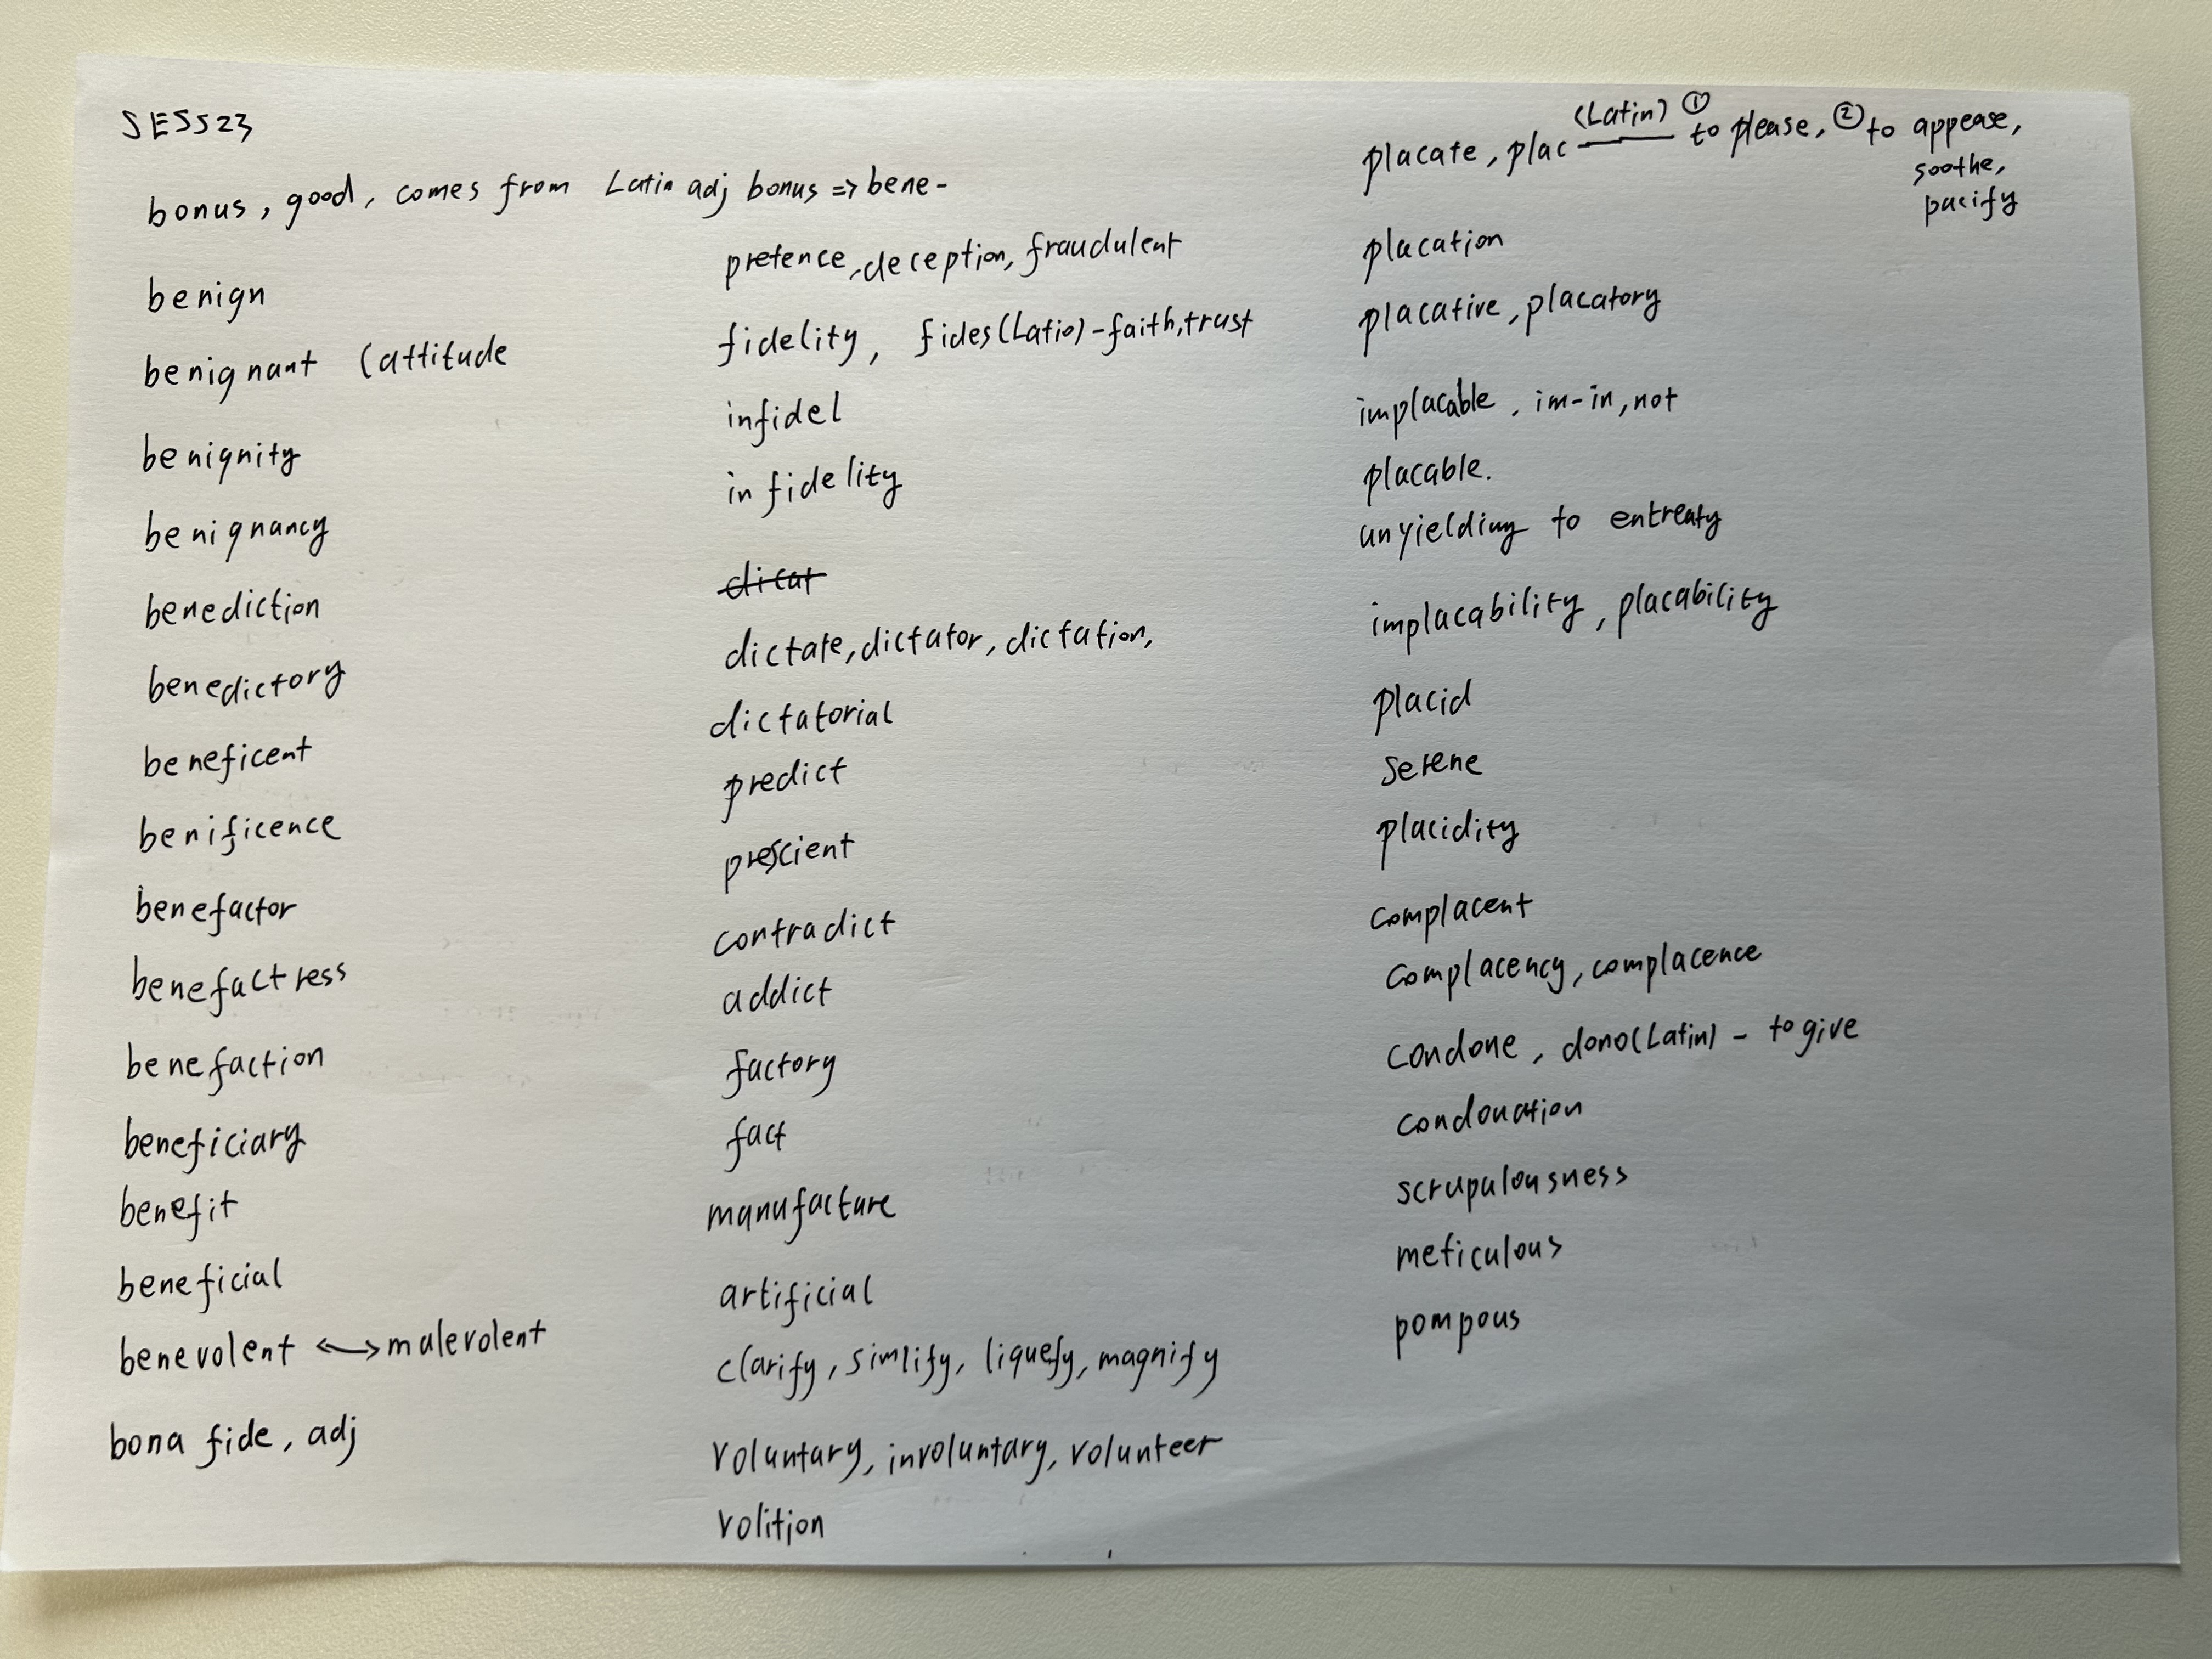 SESS23
bonus, good, comes from Latin adj bonus => bene-
benign
benignant (attitude
benignity
benignancy
benediction
benedictory
beneficent
benificence
benefactor
benefactress
benefaction
beneficiary
benefit
beneficial
benevolent <-> malevolent
bona fide, adj
pretence, deception, fraudulent
fidelity, fides(Latio)-faith, trust
infidel
infidelity
dicat
dictate, dictator, dictation,
dictatorial
predict
prescient
contradict
addict
factory
fact
manufacture
artificial
clarify, simlify, liquefy, magnify
voluntary, involuntary, volunteer
volition
placate, plac —— (Latin) ① to please, ② to appease,
soothe,
pacify
placation
placative, placatory
implacable, im-in, not
placable.
unyielding to entreaty
implacability, placability
placid
serene
placidity
complacent
complacency, complacence
condone, dono(Latin) - to give
condonation
scrupulousness
meticulous
pompous